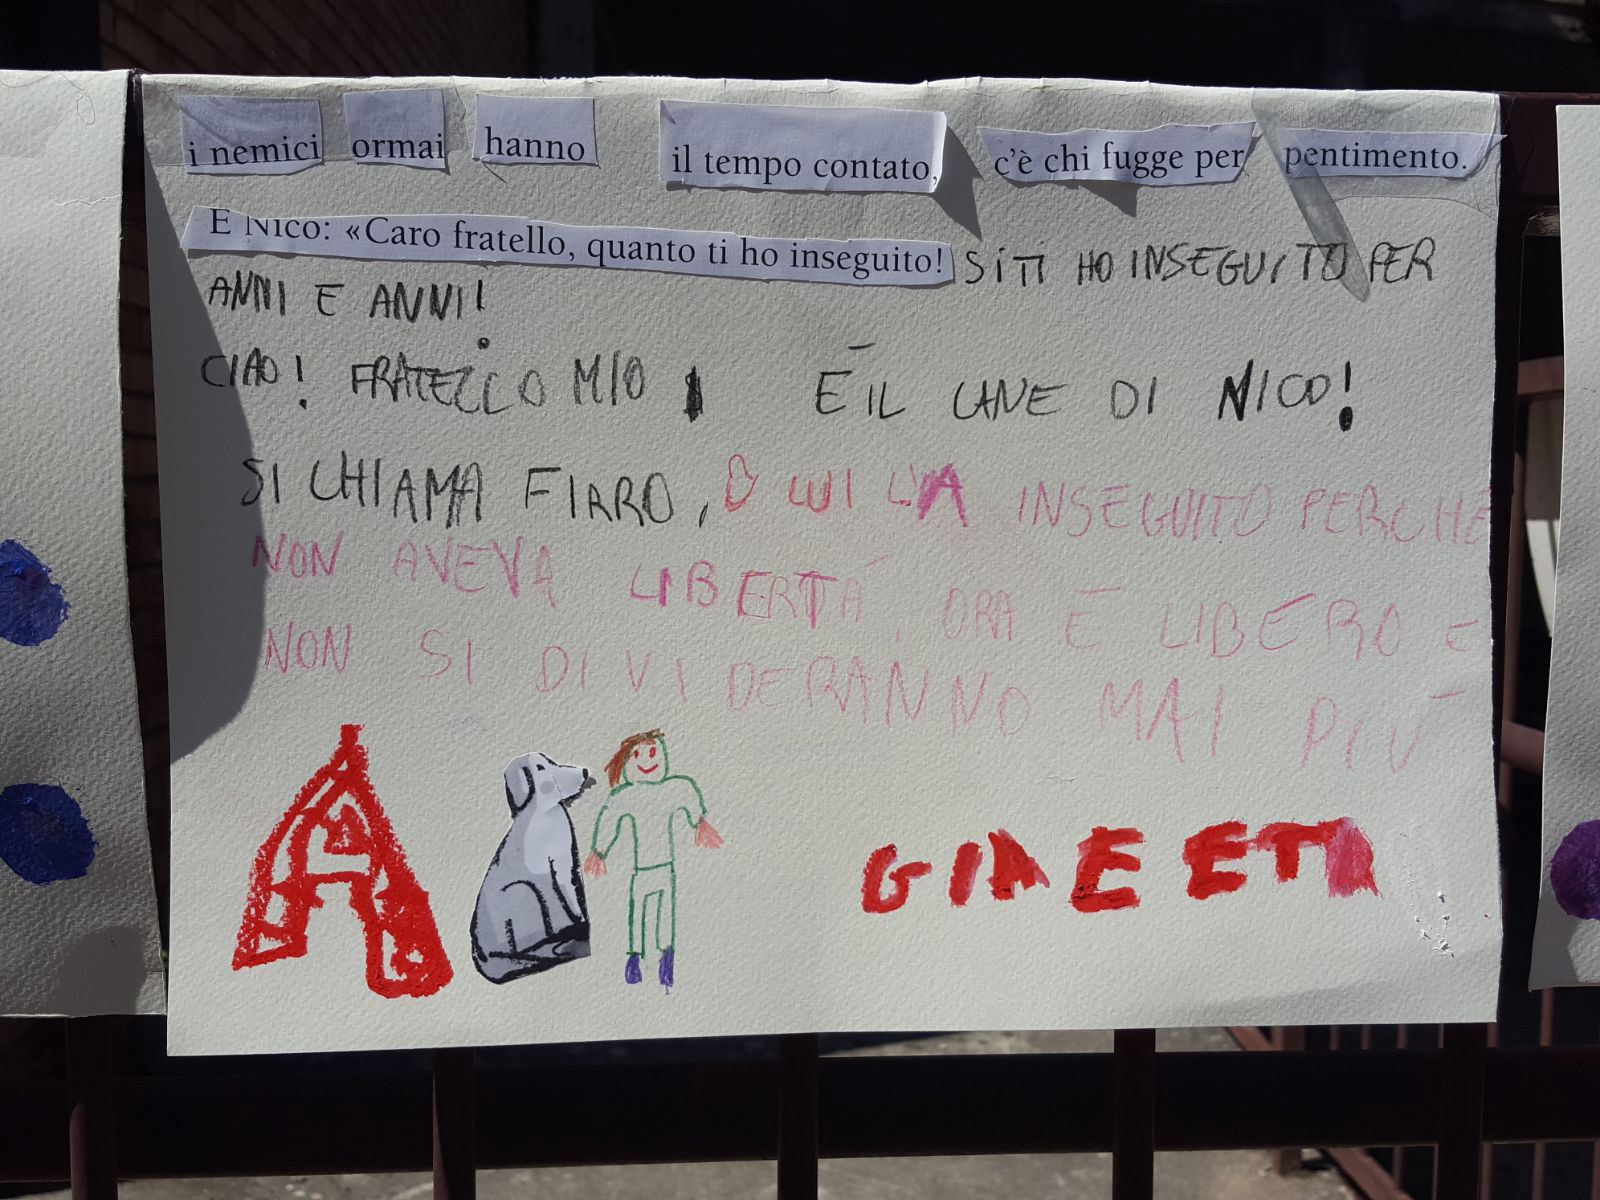 i nemici ormai hanno il tempo contato, c'è chi fugge per pentimento.
E Nico: «Caro fratello, quanto ti ho inseguito! SI TI HO INSEGUITO PER
ANNI E ANNI!
CIAO! FRATELLO MIO È IL CANE DI NICO!
SI CHIAMA FIRRO, LUI L'A INSEGUITO PERCHÉ
NON AVEVA LIBERTÁ, ORA É LIBERO E
NON SI DIVIDERANNO MAI PIÚ
A GIA E ETI